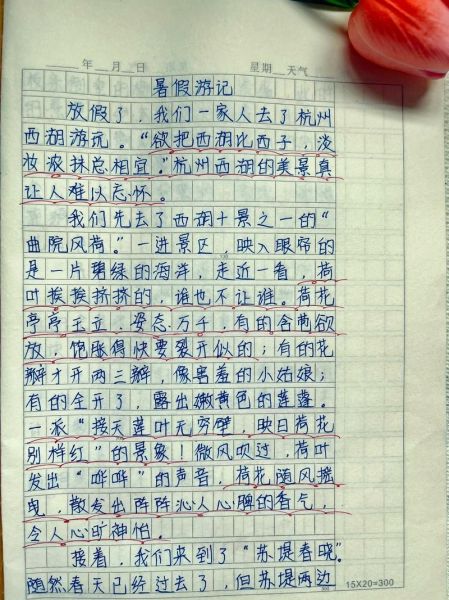 年 月 日 星期 天气
暑假游记
放假了，我们一家人去了杭州
西湖游玩。“欲把西湖比西子，淡
妆浓抹总相宜。”杭州西湖的美景真
让人难以忘怀。
我们先去了西湖十景之一的“
曲院风荷。”一进景区，映入眼帘的
是一片碧绿的海洋，走近一看，荷
叶挨挨挤挤的，谁也不让谁。荷花
亭亭玉立，姿态万千，有的含苞欲
放，饱胀得快要裂开似的；有的花
瓣才开两三瓣，像害羞的小姑娘；
有的全开了，露出嫩黄色的莲蓬。
一派“接天莲叶无穷壁，映日荷花
别样红”的景象！微风吹过，荷叶
发出“哗哗”的声音，荷花随风摇
曳，散发出阵阵沁人心脾的香气，
令人心旷神怡。
接着，我们来到了“苏堤春晓”。
随然春天已经过去了，但苏堤两边
15X20=300